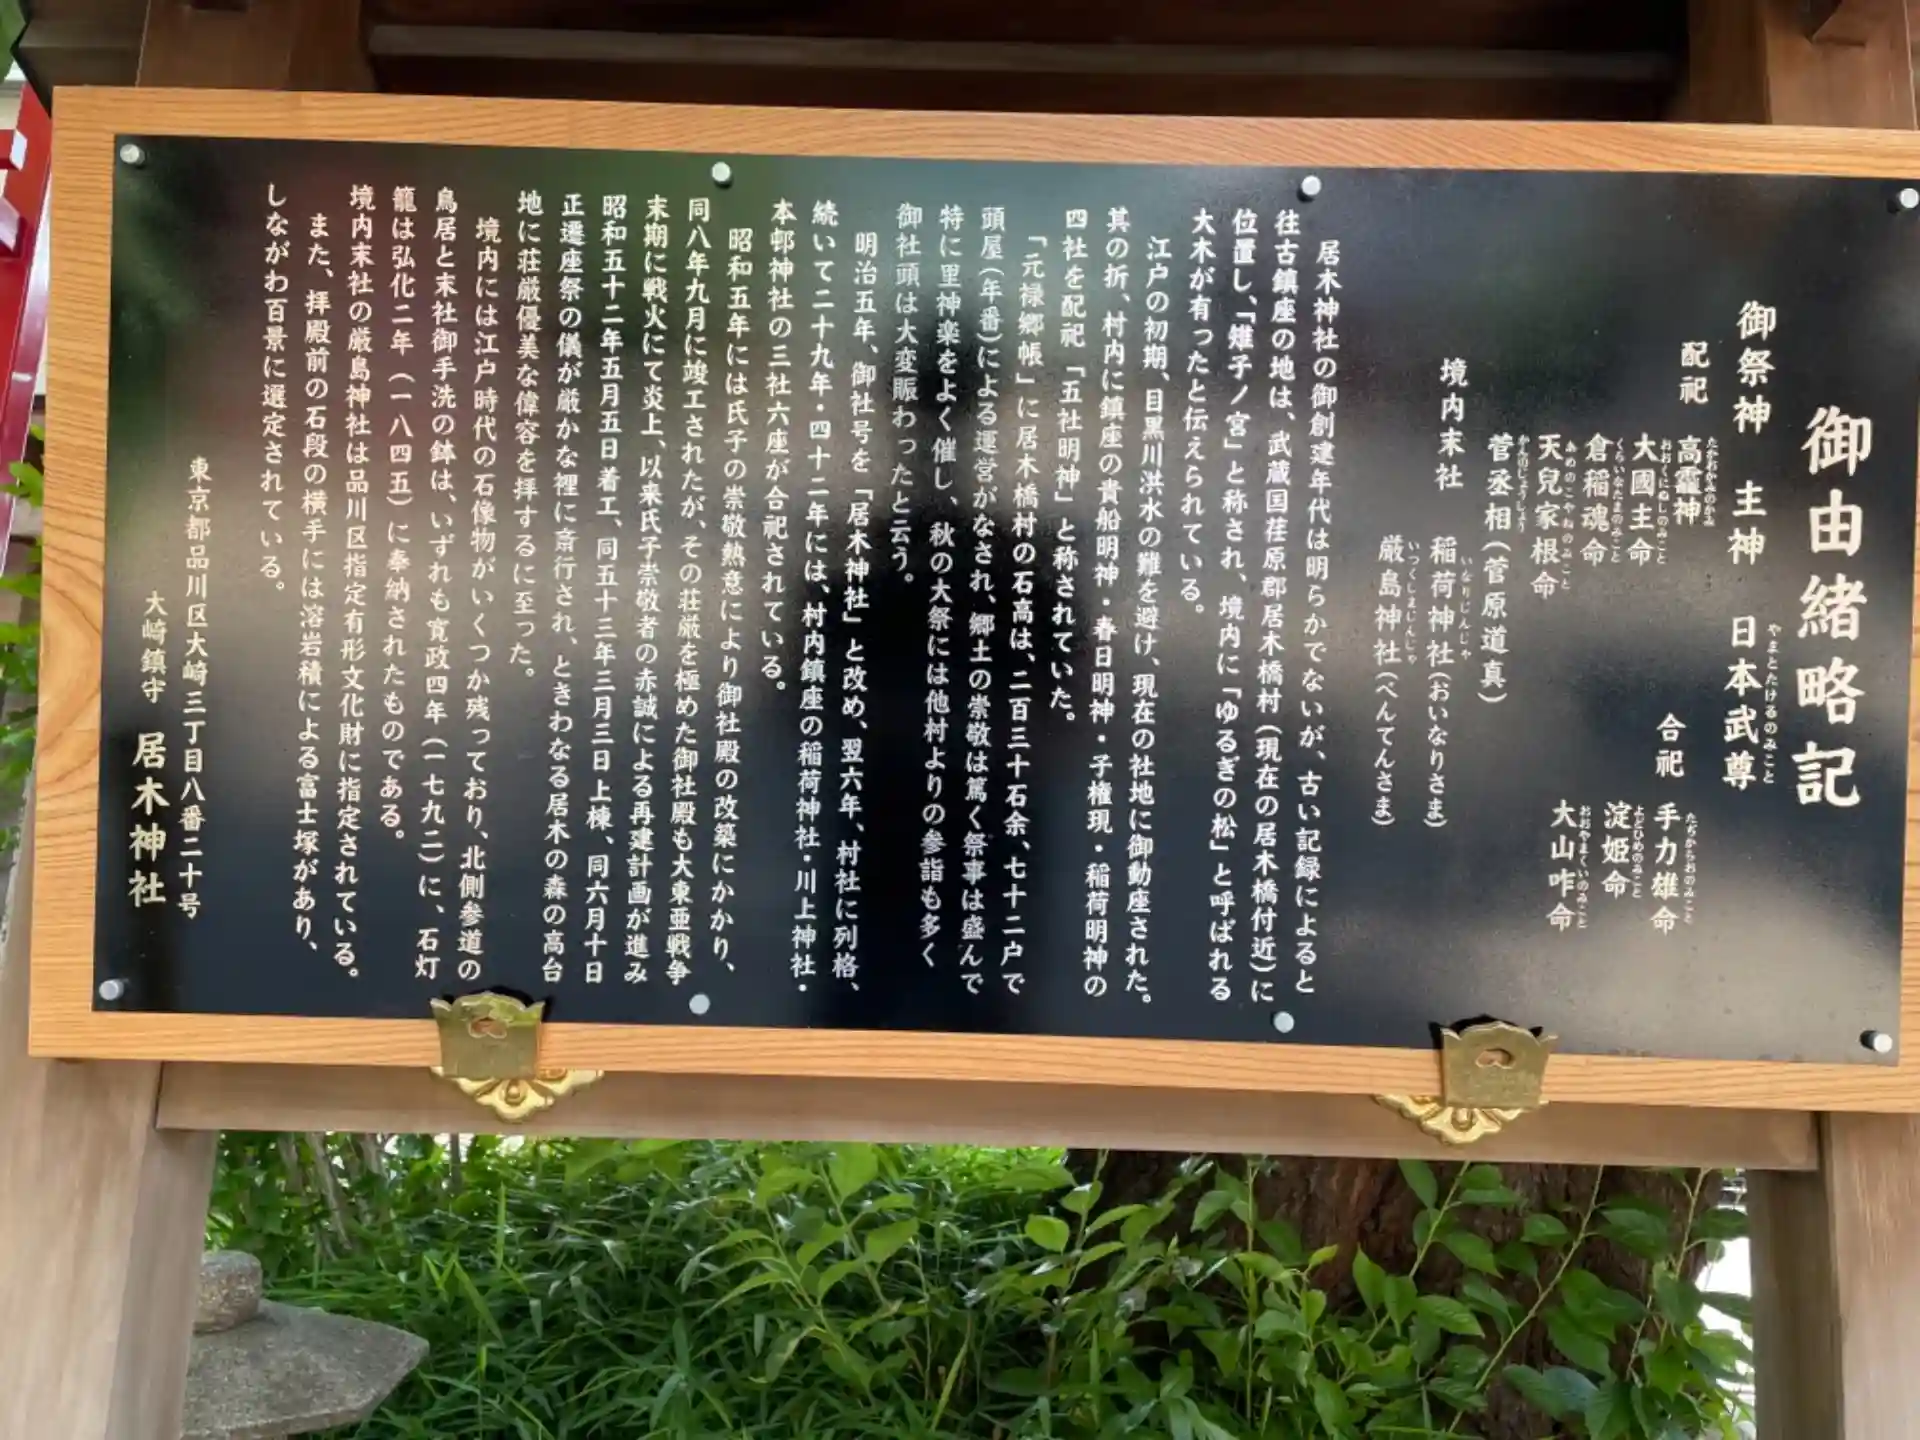 御由緒略記
御祭神　主神　日本武尊
やまとたけるのみこと
配祀　高龗神
たかおかみのかみ
大國主命
おおくにぬしのみこと
倉稲魂命
くらいなたまのみこと
天兒家根命
あめのこやねのみこと
菅丞相(菅原道真)
かんのしょうじょう
合祀　手力雄命
たぢからおのみこと
淀姫命
よどひめのみこと
大山咋命
おおやまくいのみこと
境内末社　稲荷神社(おいなりさま)
いなりじんじゃ
厳島神社(べんてんさま)
いつくしまじんじゃ
居木神社の御創建年代は明らかでないが、古い記録によると
往古鎮座の地は、武蔵国荏原郡居木橋村(現在の居木橋付近)に
位置し、「雉子ノ宮」と称され、境内に「ゆるぎの松」と呼ばれる
大木が有ったと伝えられている。
江戸の初期、目黒川洪水の難を避け、現在の社地に御動座された。
其の折、村内に鎮座の貴船明神・春日明神・子権現・稲荷明神の
四社を配祀「五社明神」と称されていた。
「元禄郷帳」に居木橋村の石高は、二百三十石余、七十二戸で
頭屋(年番)による運営がなされ、郷土の崇敬は篤く祭事は盛んで
特に里神楽をよく催し、秋の大祭には他村よりの参詣も多く
御社頭は大変賑わったと云う。
明治五年、御社号を「居木神社」と改め、翌六年、村社に列格、
続いて二十九年・四十二年には、村内鎮座の稲荷神社・川上神社・
本邨神社の三社六座が合祀されている。
昭和五年には氏子の崇敬熱意により御社殿の改築にかかり、
同八年九月に竣工されたが、その荘厳を極めた御社殿も大東亜戦争
末期に戦火にて炎上、以来氏子崇敬者の赤誠による再建計画が進み
昭和五十二年五月五日着工、同五十三年三月三日上棟、同六月十日
正遷座祭の儀が厳かな裡に斎行され、ときわなる居木の森の高台
地に荘厳優美な偉容を拝するに至った。
境内には江戸時代の石像物がいくつか残っており、北側参道の
鳥居と末社御手洗の鉢は、いずれも寛政四年(一七九二)に、石灯
籠は弘化二年(一八四五)に奉納されたものである。
境内末社の厳島神社は品川区指定有形文化財に指定されている。
また、拝殿前の石段の横手には溶岩積による富士塚があり、
しながわ百景に選定されている。
東京都品川区大崎三丁目八番二十号
大崎鎮守　居木神社